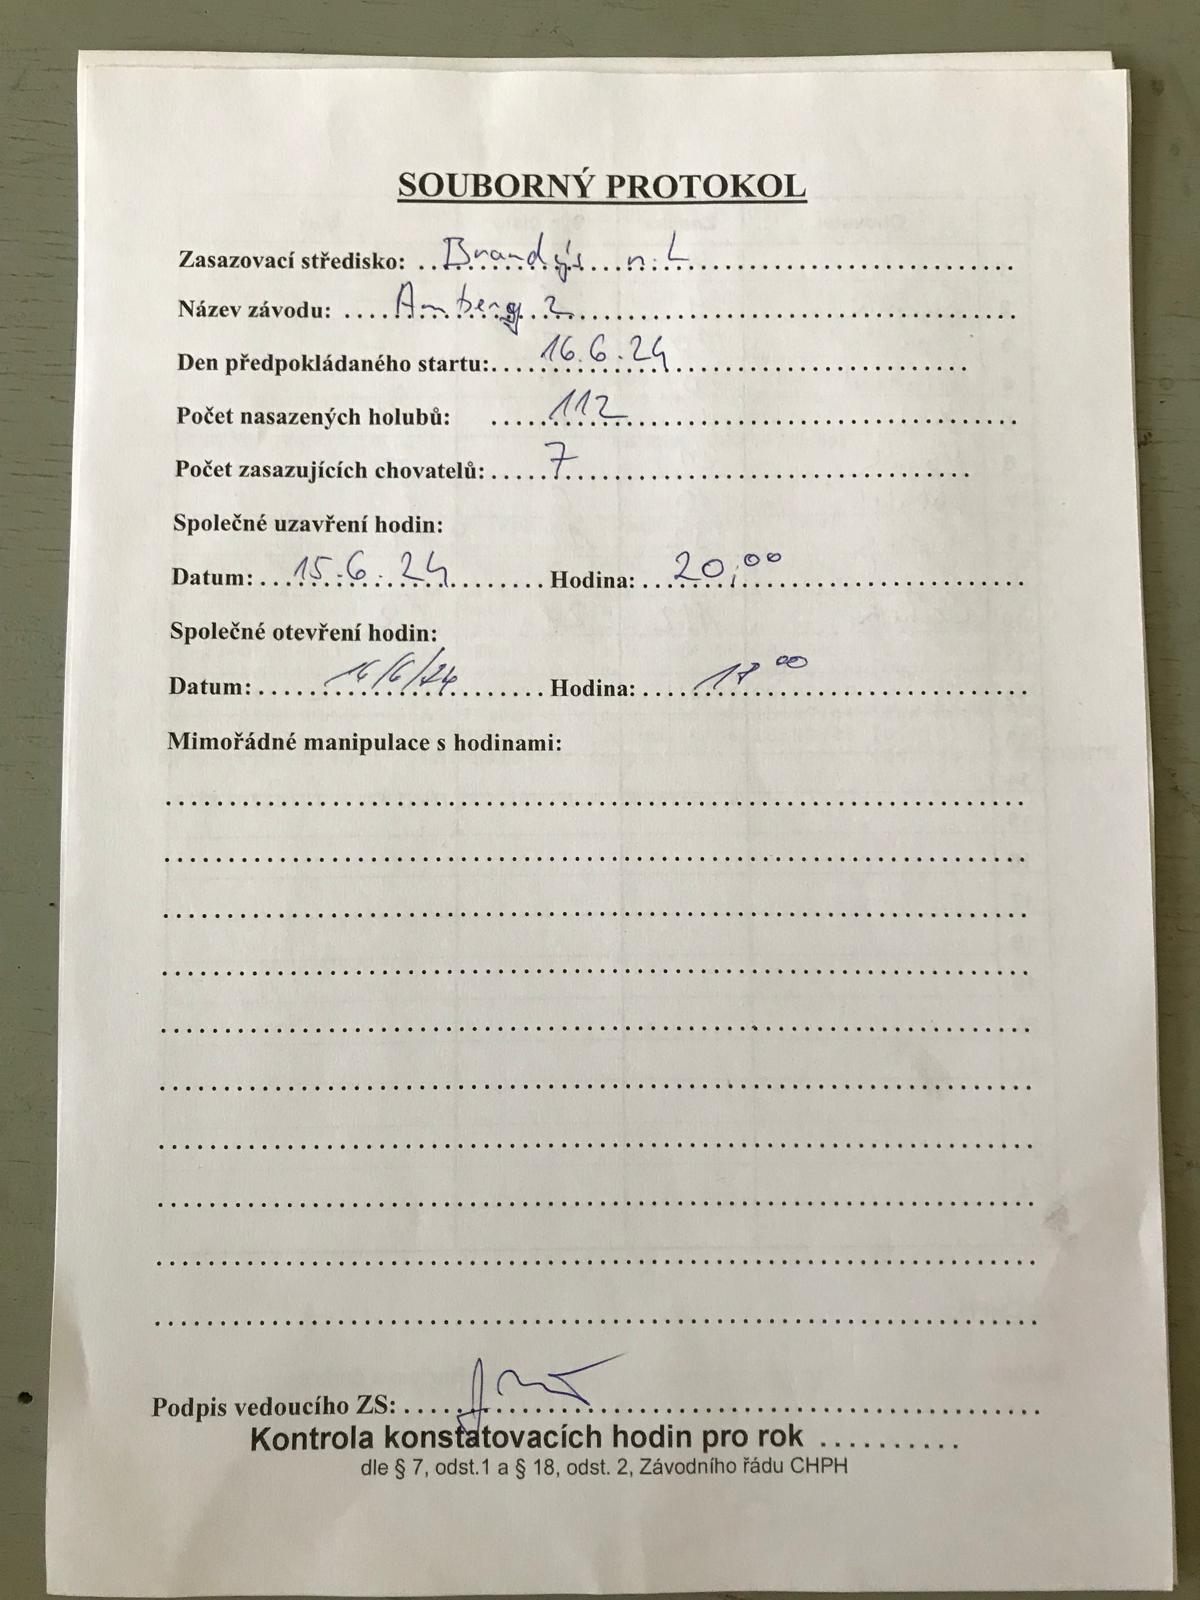 SOUBORNÝ PROTOKOL
Zasazovací středisko: Brandýs n.L
Název závodu: Amberg 2
Den předpokládaného startu: 16.6.24
Počet nasazených holubů: 112
Počet zasazujících chovatelů: 7
Společné uzavření hodin:
Datum: 15.6.24 Hodina: 20,00
Společné otevření hodin:
Datum: 16/6/24 Hodina: 18 00
Mimořádné manipulace s hodinami:
Podpis vedoucího ZS:
Kontrola konstatovacích hodin pro rok ..........
dle § 7, odst.1 a § 18, odst. 2, Závodního řádu CHPH